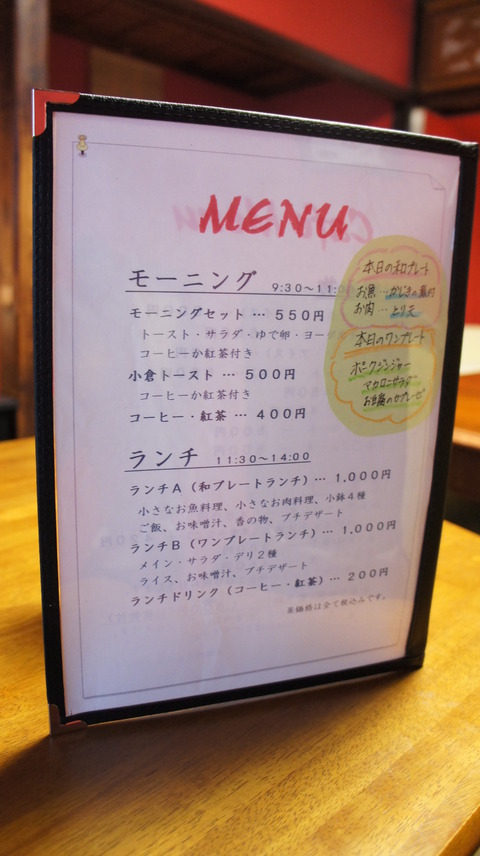 MENU
モーニング 9:30～11:00
モーニングセット … 550円
トースト・サラダ・ゆで卵・ヨーグ
コーヒーか紅茶付き
小倉トースト … 500円
コーヒーか紅茶付き
コーヒー・紅茶 … 400円
ランチ 11:30～14:00
ランチA（和プレートランチ）… 1,000円
小さなお魚料理、小さなお肉料理、小鉢4種
ご飯、お味噌汁、香の物、プチデザート
ランチB（ワンプレートランチ）… 1,000円
メイン・サラダ・デリ2種
ライス、お味噌汁、プチデザート
ランチドリンク（コーヒー・紅茶）… 200円
※価格は全て税込みです。
本日の和プレート
お魚…かじきの煮付
お肉…とり天
本日のワンプレート
ポークジンジャー
マカロニサラダ
お豆腐のカプレーゼ